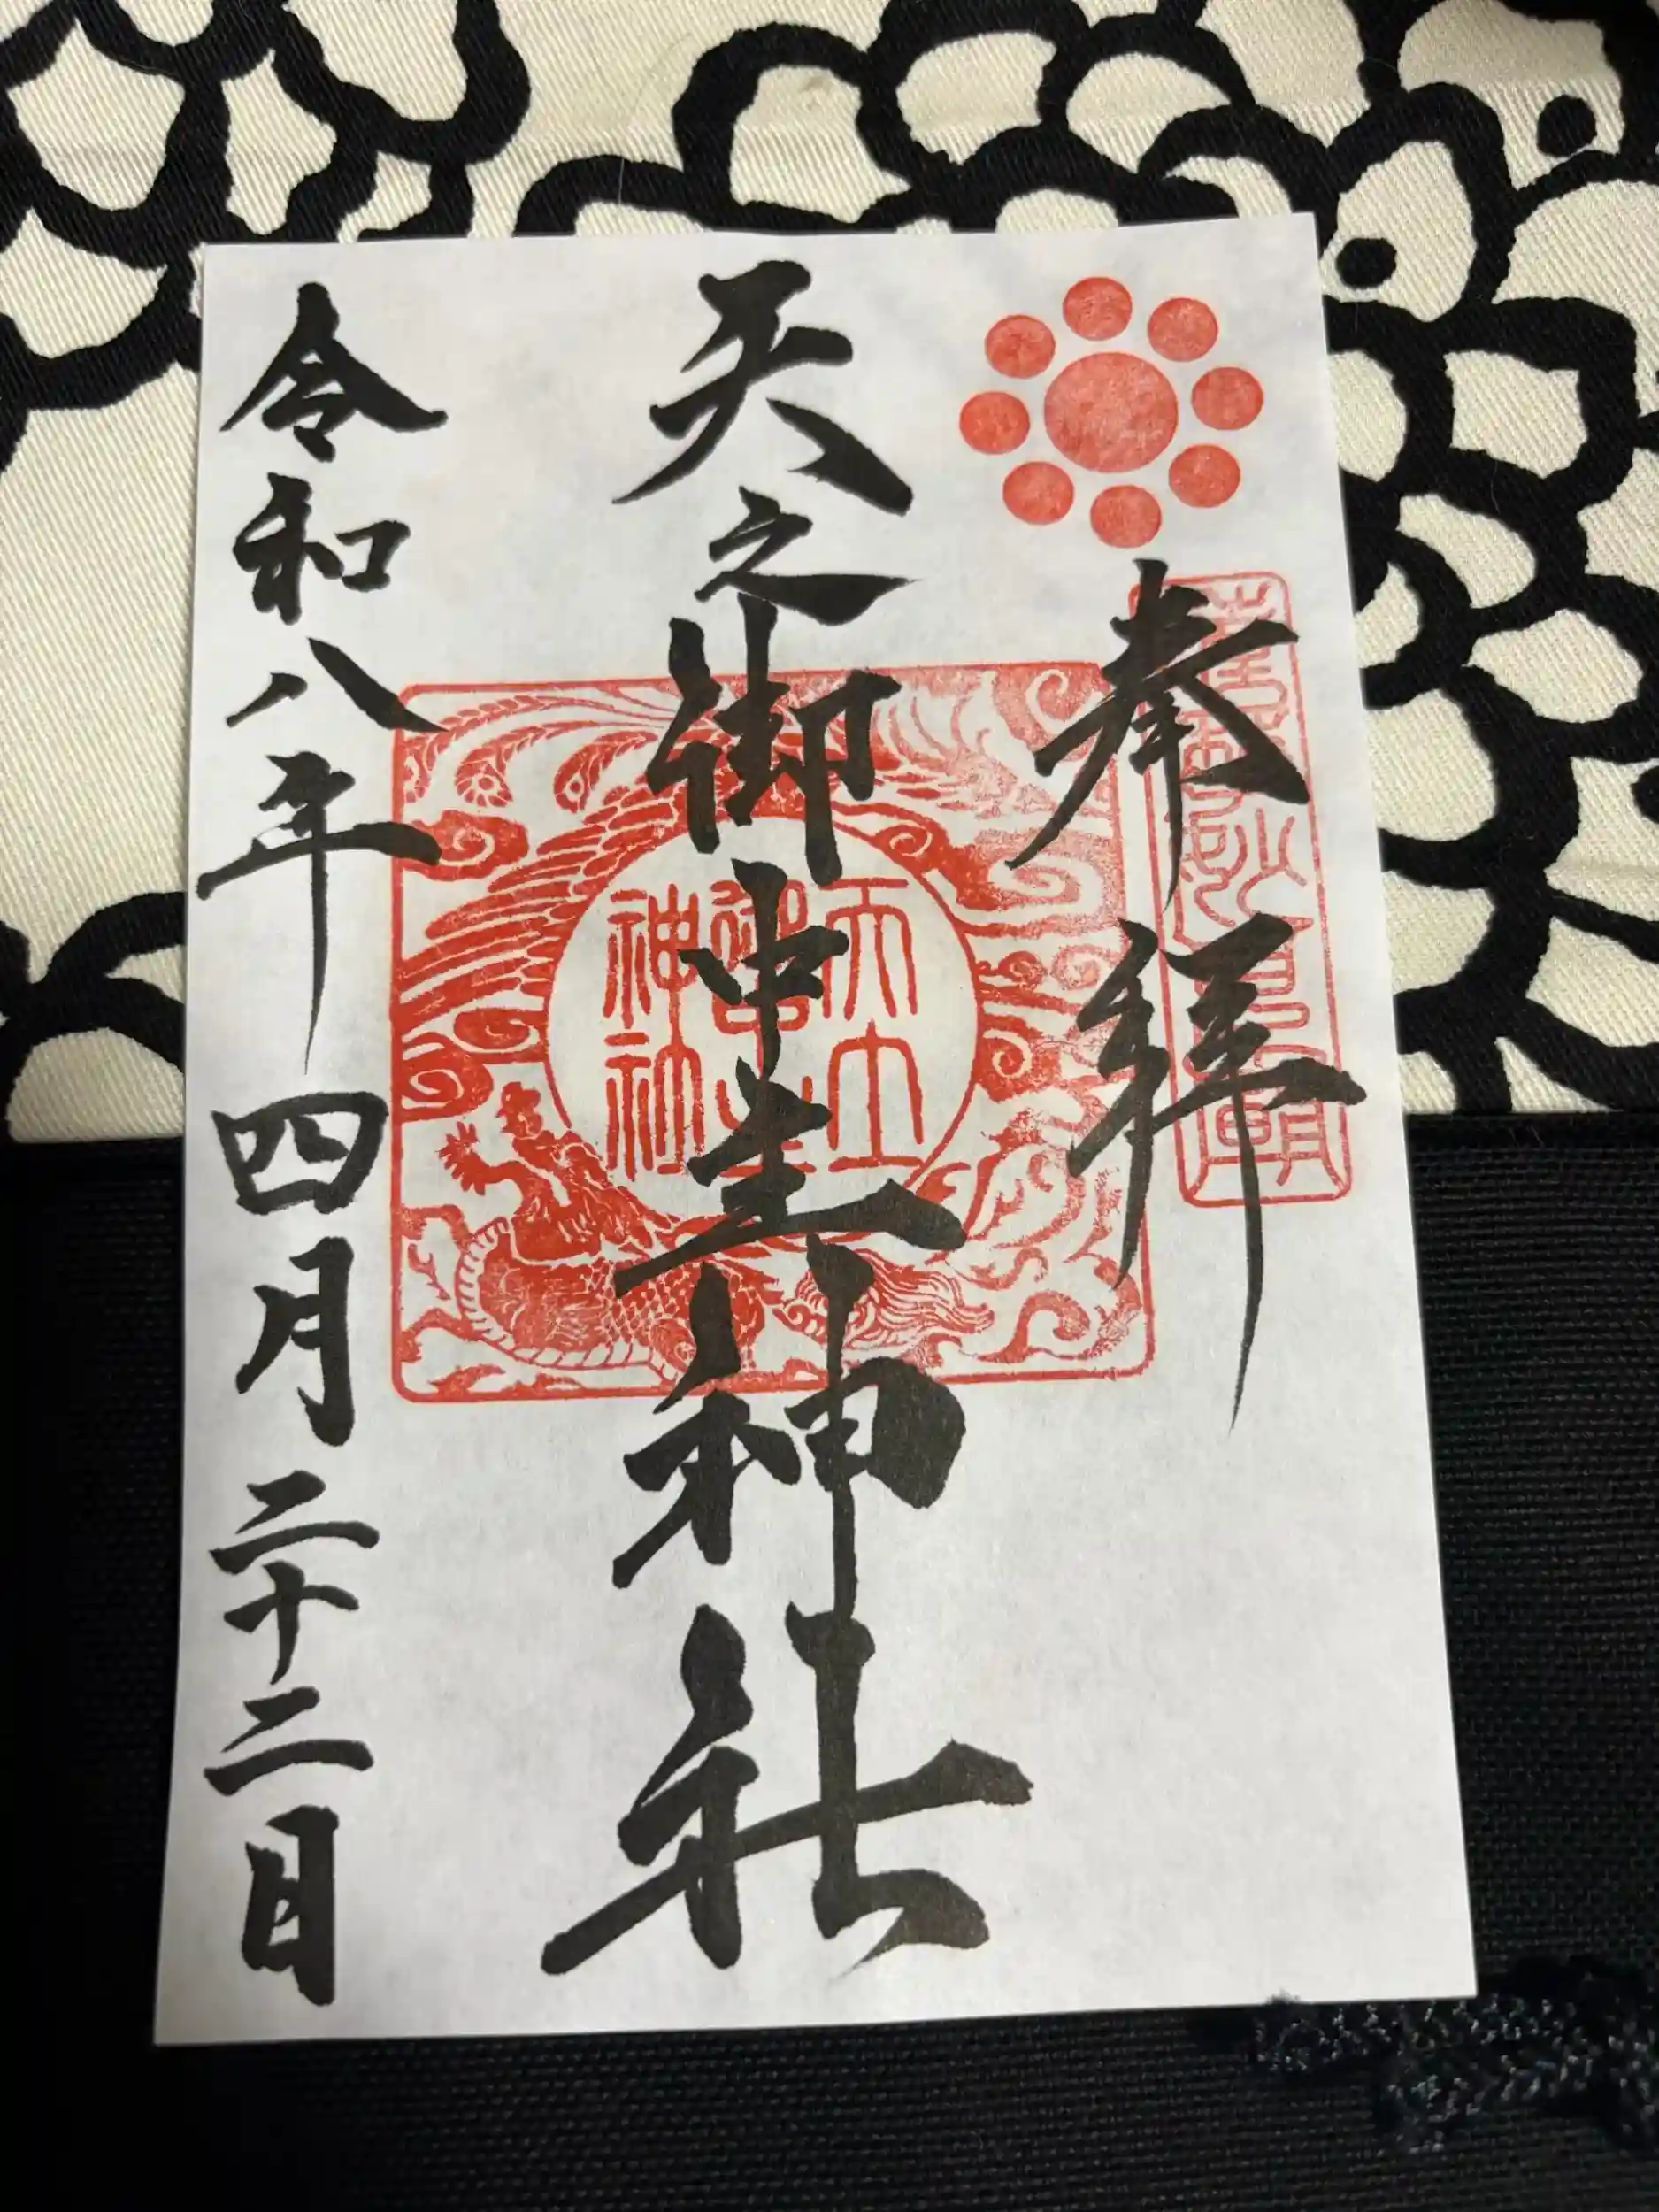 奉拝
天之御中主神社
天之
御中主
神社
令和八年四月二十二日